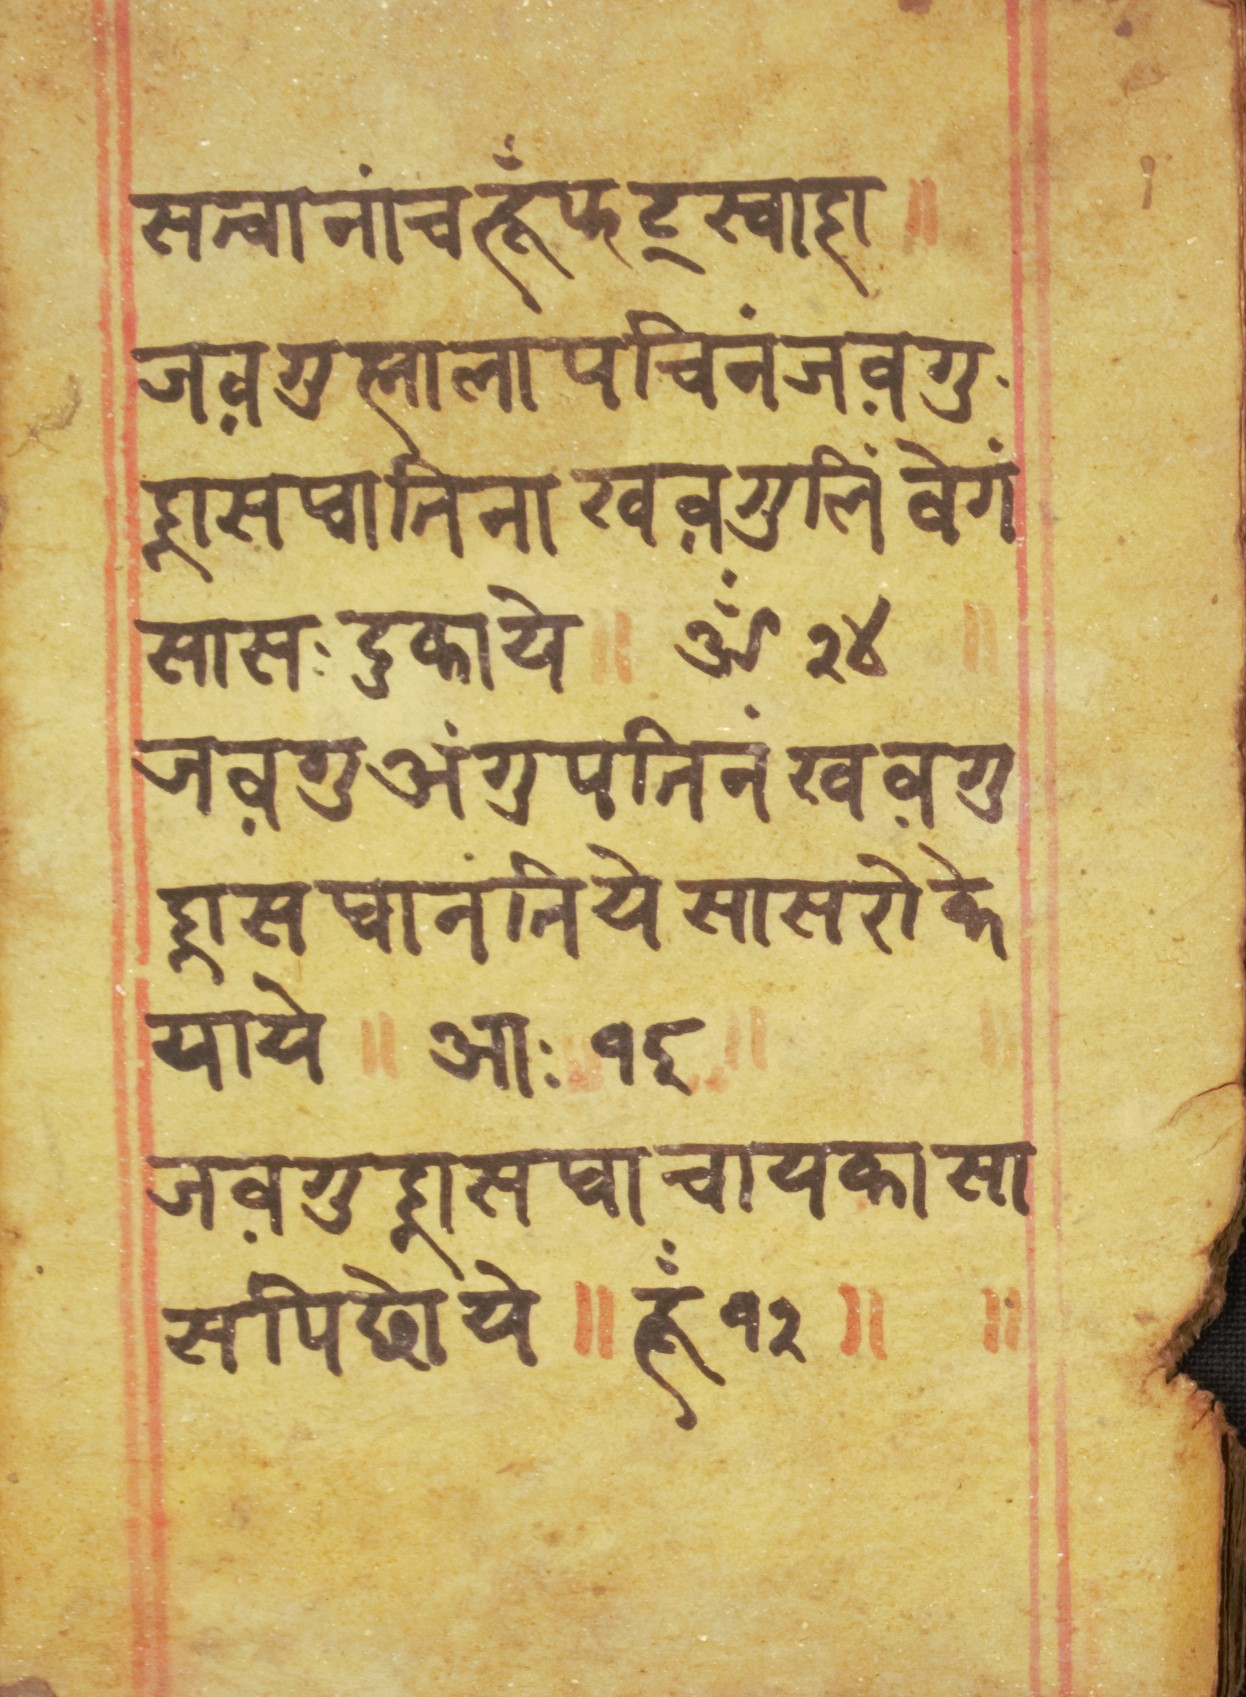 सत्वानांच हूँ फट् स्वाहा ॥
जव़गु ह्लाला पचिनं जव़गु
ह्लास प्वातिना खव़गुलिं वेगं
सासः दुकाये ॥ ॐ २४ ॥
जव़गु अंगुपतिनं खव़गु
ह्लास प्वानंतिये सासरोके
याये ॥ आः १६ ॥ ॥
जव़गु ह्लास प्वाचायका सा
सपिछोये ॥ हूँ १२ ॥ ॥